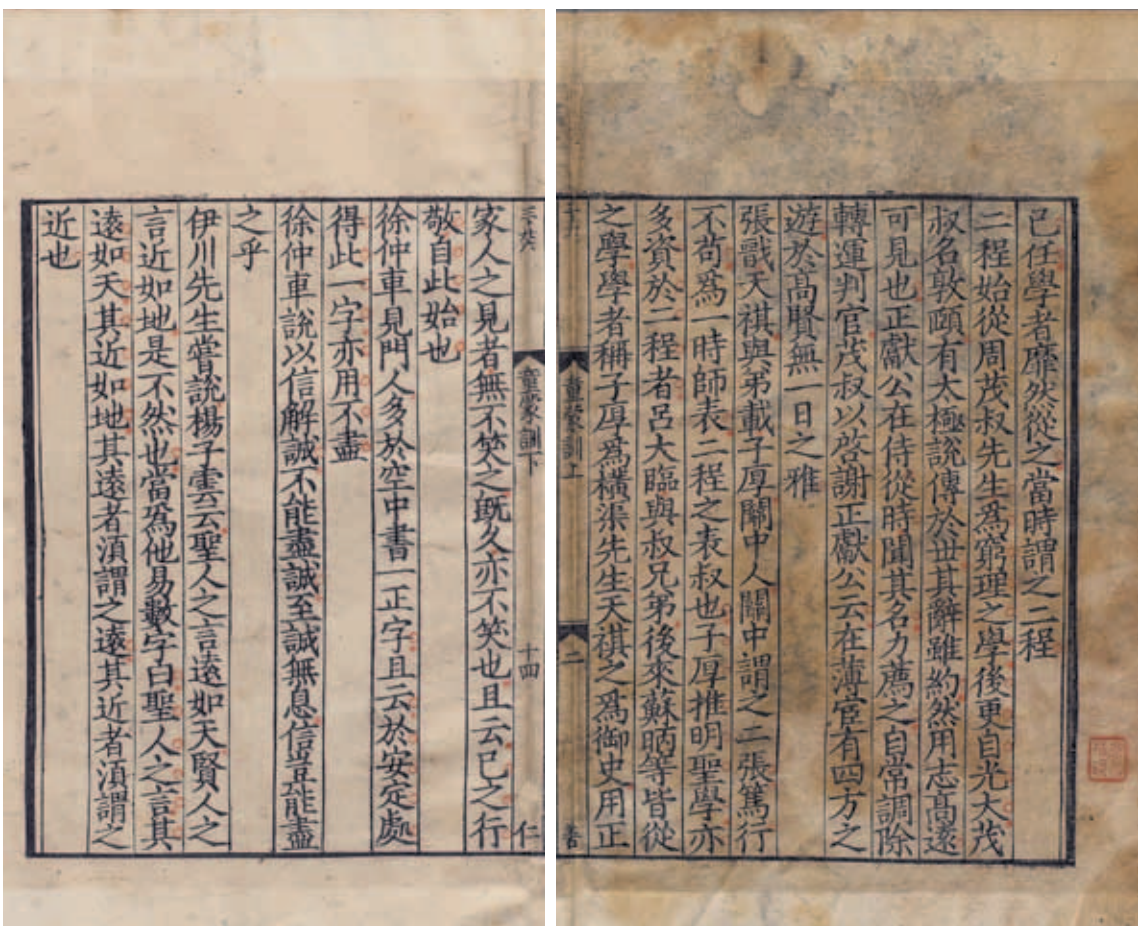 已任學者靡然從之當時謂之二程
二程始從周茂叔先生爲窮理之學後更自光大茂
叔名敦頤有太極說傳於世其辭雖約然用志高遠
可見也正獻公在侍從時聞其名力薦之自常調除
轉運判官茂叔以啓謝正獻公云在薄宦有四方之
遊於高賢無一日之雅
張戩天祺與弟載子厚關中人關中謂之二張篤行
不苟爲一時師表二程之表叔也子厚推明聖學亦
多資於二程者呂大臨與叔兄弟後來蘇昞等皆從
之學學者稱子厚爲橫渠先生天祺之爲御史用正
童蒙訓上
二
家人之見者無不笑之既久亦不笑也且云已之行
敬自此始也
徐仲車見門人多於空中書一正字且云於安定處
得此一字亦用不盡
徐仲車說以信解誠不能盡誠至誠無息信豈能盡
之乎
伊川先生嘗說楊子雲云聖人之言遠如天賢人之
言近如地是不然也當爲他易數字曰聖人之言其
遠如天其近如地其遠者湏謂之遠其近者湏謂之
近也
童蒙訓下
十四
仁